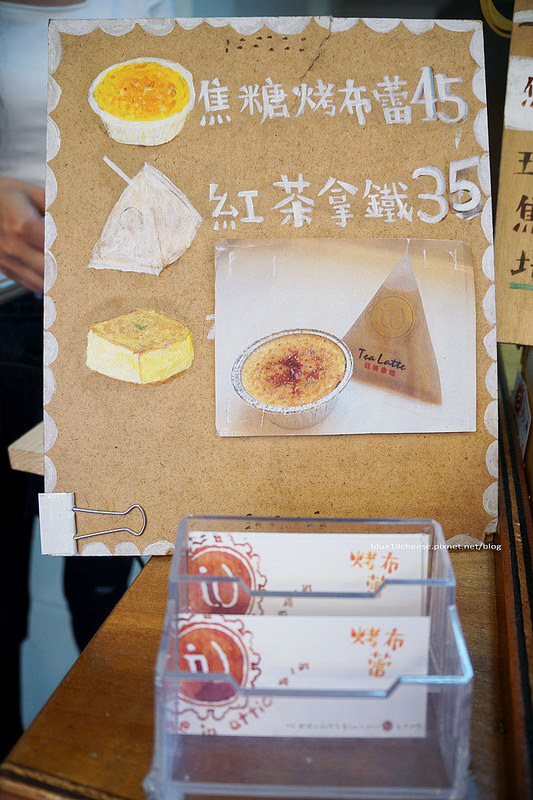 焦糖烤布蕾45
紅茶拿鐵35
Tea Latte
紅茶拿鐵
blue19cheese.pixnet.net/blog
烤布
蕾
烤布
蕾
in attic